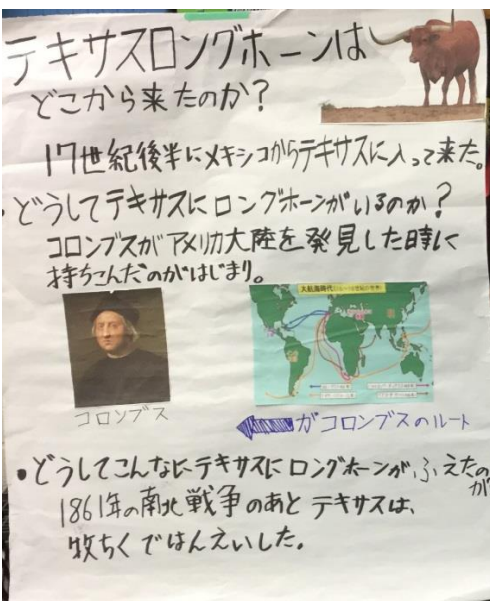 テキサスロングホーンは
どこから来たのか?
17世紀後半にメキシコからテキサスに入って来た。
・どうしてテキサスにロングホーンがいるのか?
コロンブスがアメリカ大陸を発見した時に
持ちこんだのがはじまり。
大航海時代
コロンブス
がコロンブスのルート
・どうしてこんなにテキサスにロングホーンがふえたの
か
1861年の南北戦争のあとテキサスは、
牧ちくではんえいした。